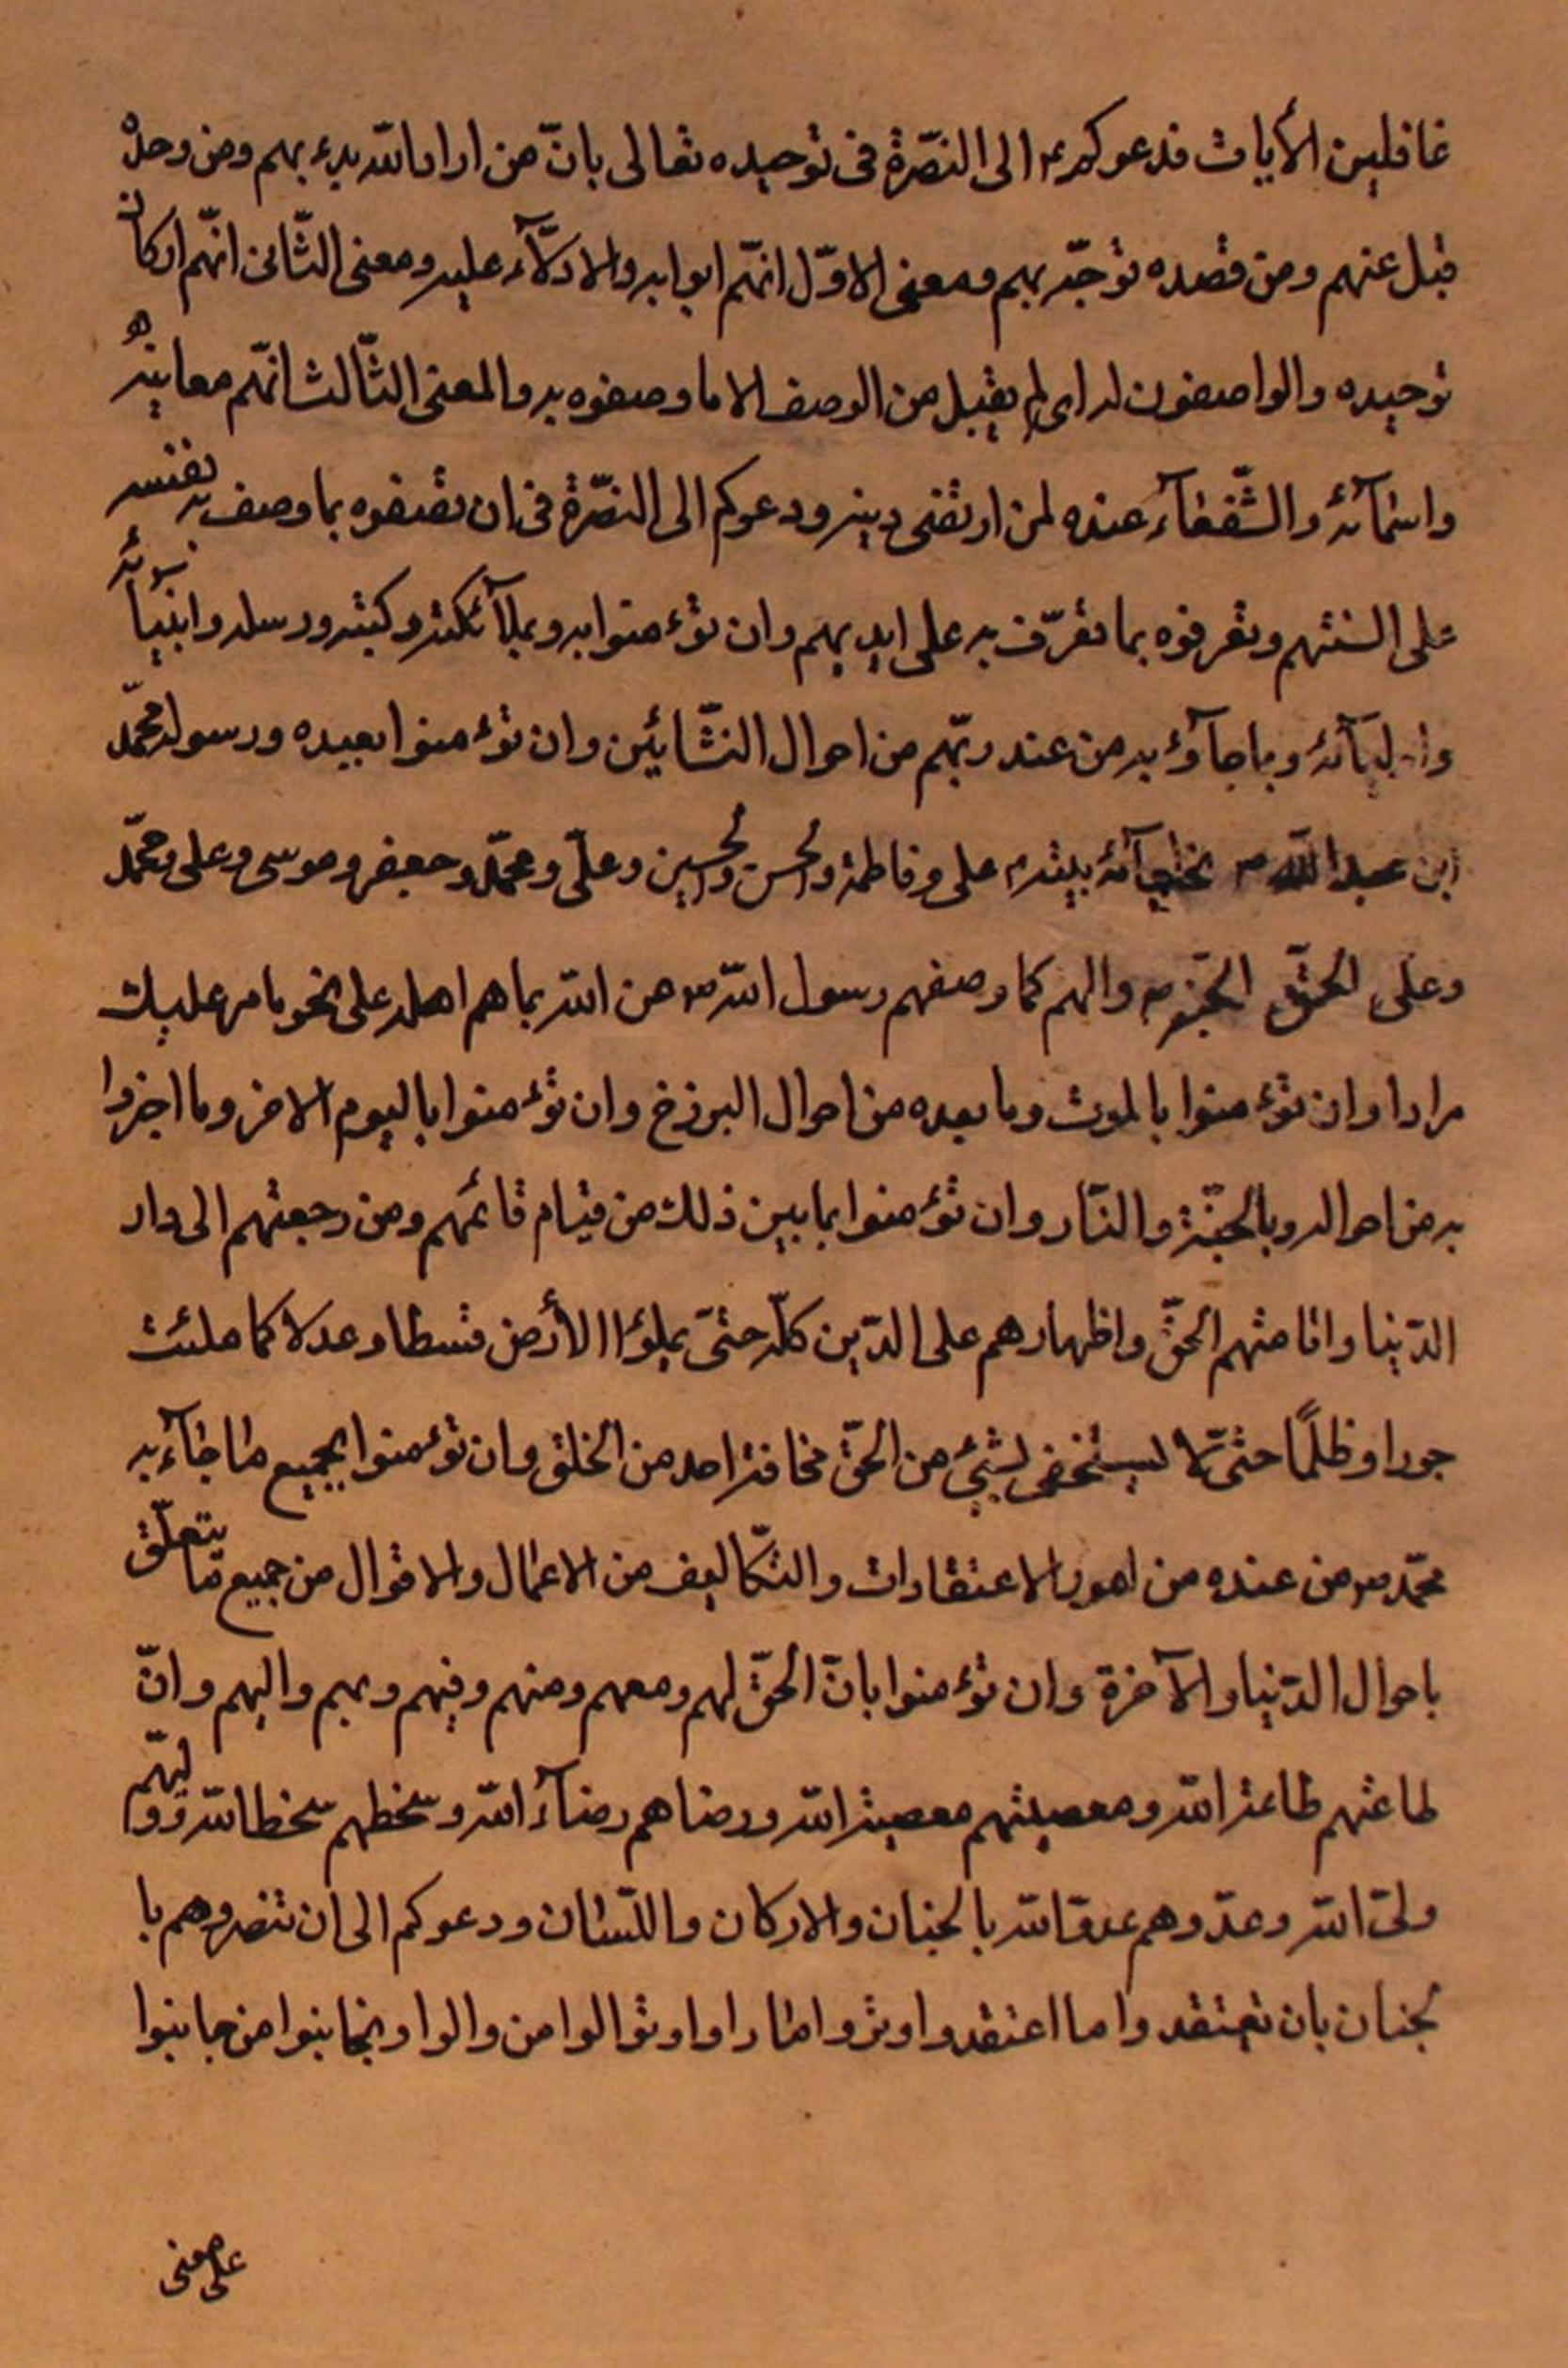 غافلين الأيات فدعوكم ع الى النصّرة فى توحيده تعالى بانّ من اراد الله بدء بهم ومن وحده
قبل عنهم ومن قصده توجّه بهم ومعنى الاوّل انهّم ابوابه والادلّآء عليه ومعنى الثّانى انهّم اركان
توحيده والواصفون له اى لم يقبل من الوصف الا ما وصفوه به والمعنى الثّالث انهّم معانيه
واسمآئه والشّفعآء عنده لمن ارتضى دينه ودعوكم الى النصّرة فى ان تصفوه بما وصف به نفسه
على السنتهم وتعرفوه بما تعرّف به على ايديهم وان تؤمنوا به وبملآئكته وكتبه ورسله وانبيآئه
واوليآئه وبما جآؤ به من عند ربّهم من احوال النشّائين وان تؤمنوا بعبده ورسوله محمّد
ابن عبدالله ص وبخلفآئه بيته ع على وفاطمة والحسن والحسين وعلّى ومحمّد وجعفر وموسى وعلى ومحمّد
وعلى الحسن الحجّة ع والهم كما وصفهم رسول الله ص عن الله بما هم اهله على نحو ما مر عليك
مرارا وان تؤمنوا بالموت وما بعده من احوال البرزخ وان تؤمنوا باليوم الاخر وما اخبروا
به من احواله وبالجنّة والنّار وان تؤمنوا بما بين ذلك من قيام قائمهم ومن رجعتهم الى دار
الدّينا واقامتهم الحقّ واظهارهم على الدّين كلّه حتىّ يملؤا الأرض قسطا وعدلا كما ملئت
جورا وظلمًا حتىّ لا يستخفى بشئ من الحقّ مخافة احد من الخلق وان تؤمنوا بجميع ما جآء به
محمّد ص من عنده من امور الاعتقادات والتّكاليف من الاعمال والاقوال من جميع ما يتعلّق
باحوال الدّينا والآخرة وان تؤمنوا بانّ الحقّ لهم ومعهم ومنهم وفيهم وبهم واليهم وانّ
طاعتهم طاعة الله ومعصيتهم معصية الله ورضاهم رضآء الله وسخطهم سخط الله ووليّهم
ولىّ الله وعدّوهم عدوّ الله بالجنان والاركان واللّسان ودعوكم الى ان تنصروهم با
لجنان بان تعتقدوا ما اعتقدوا وتروا ما راوا وتوالوا من والوا وتجانبوا من جانبوا
على معنى